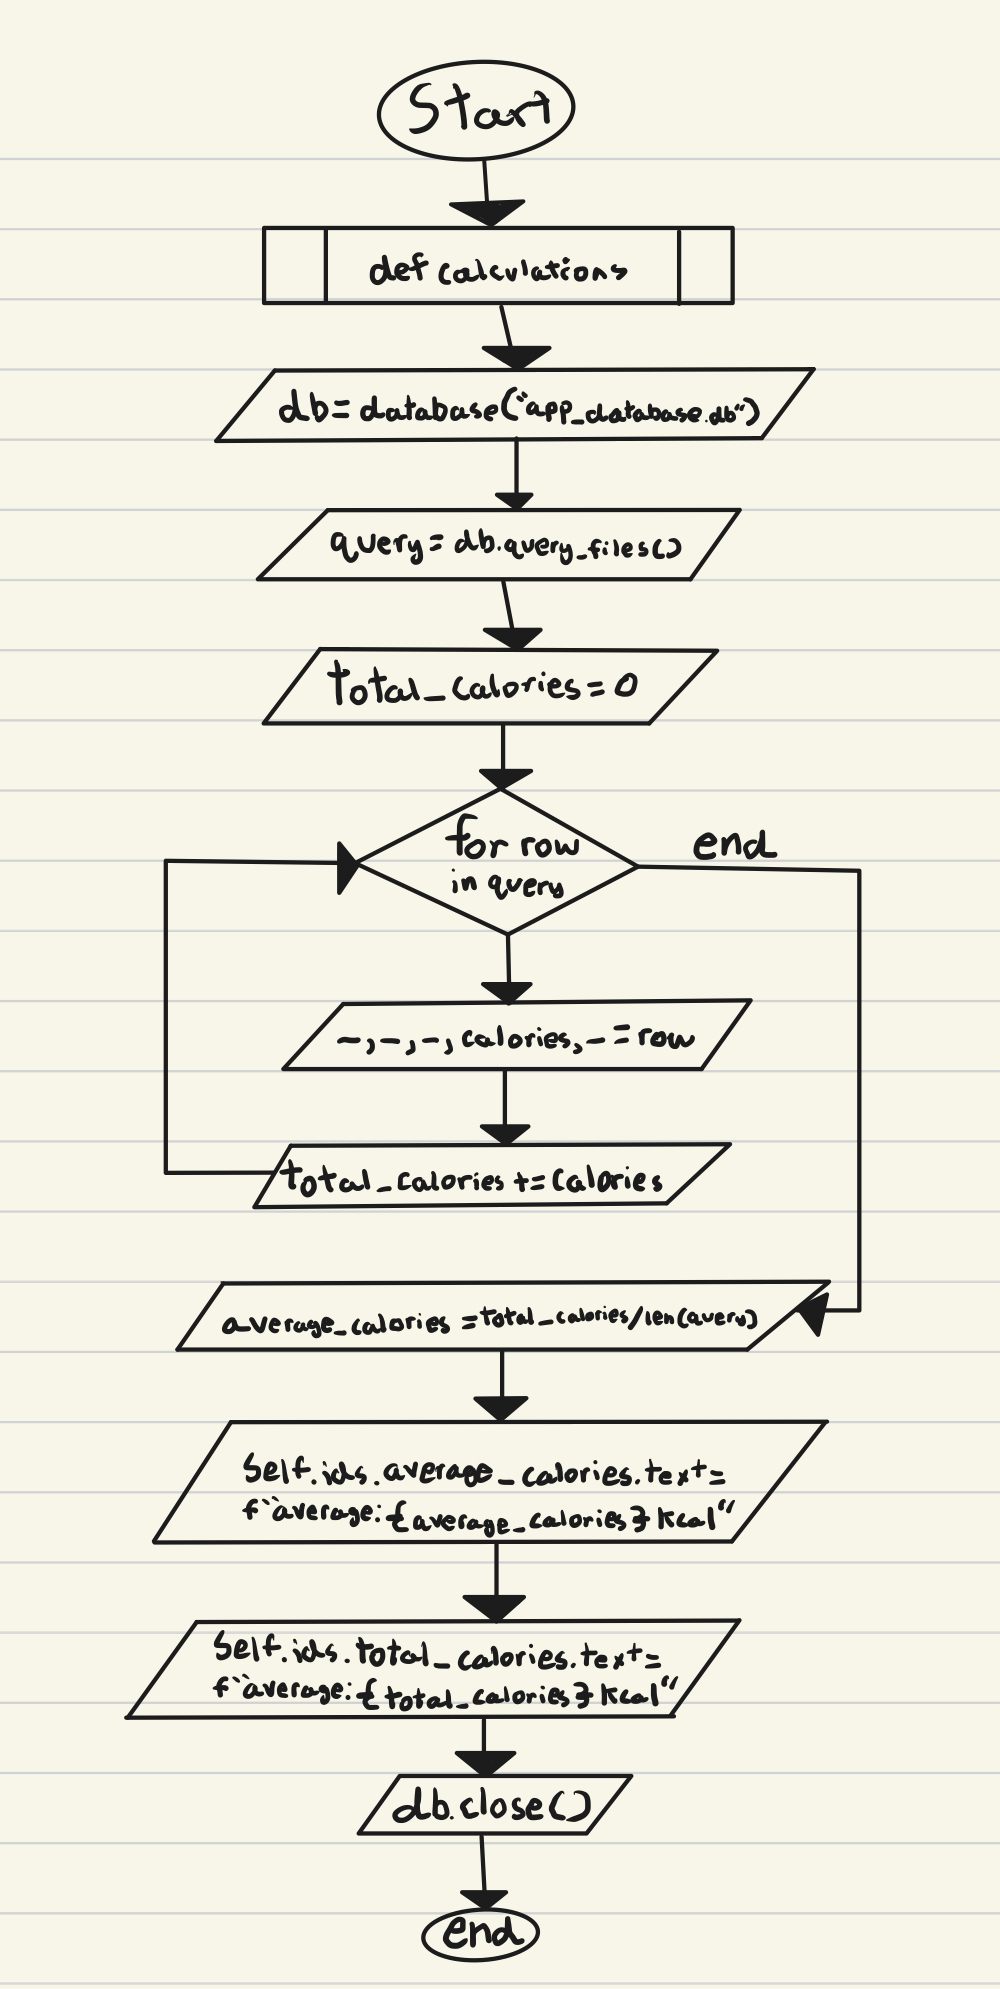 Start
def calculations
db = database("app_database.db")
query = db.query_files()
total_calories = 0
for row
in query
end
_,_,_,calories,_ = row
total_calories += calories
average_calories = total_calories/len(query)
Self.ids.average_calories.text =
f"average: {average_calories} kcal"
Self.ids.total_calories.text =
f"average: {total_calories} kcal"
db.close()
end